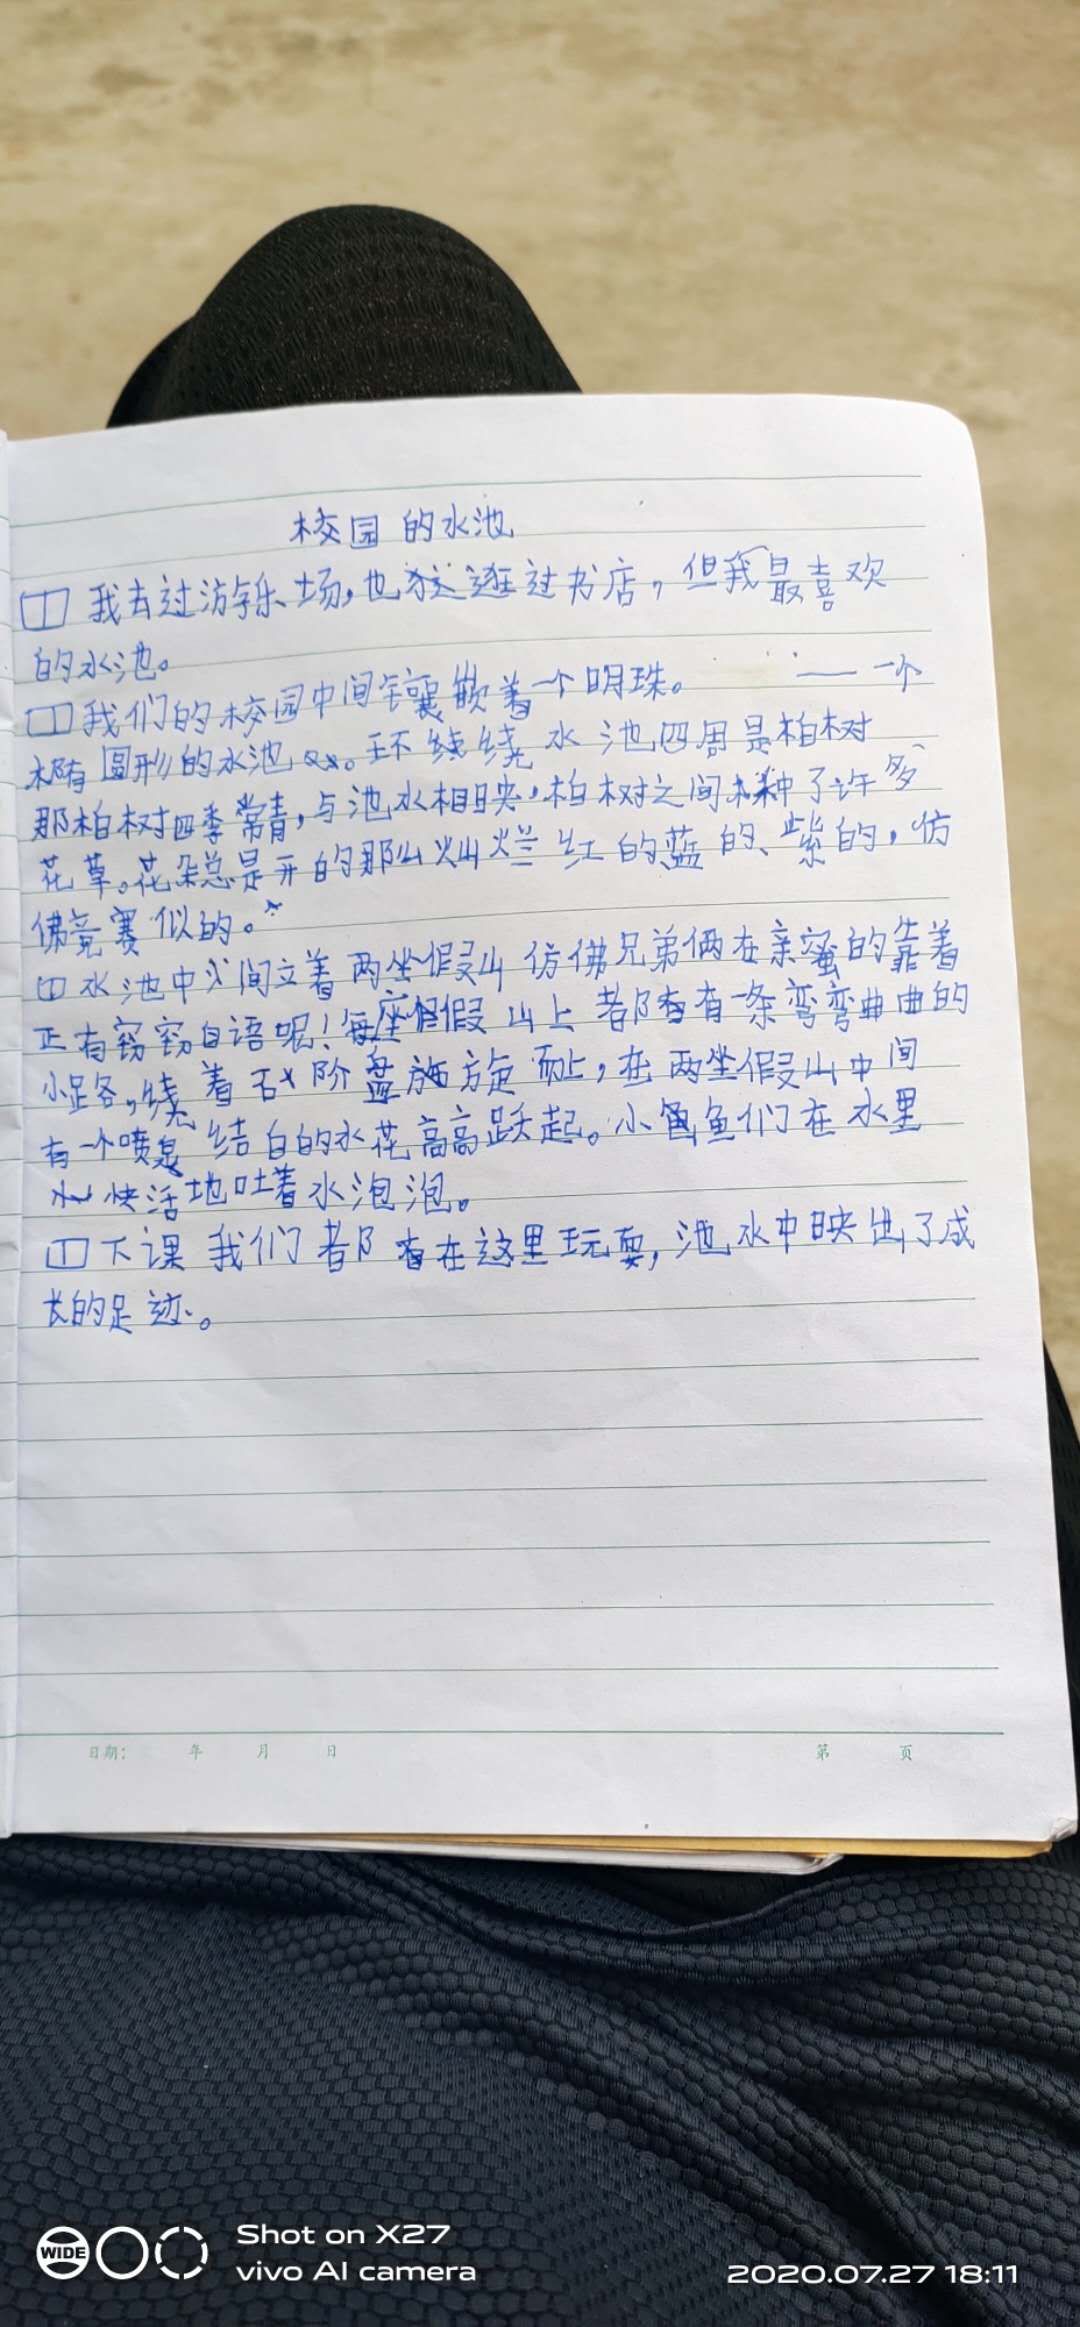 校园的水池
我去过游乐场,也逛过书店,但我最喜欢
的水池。
我们的校园中间镶嵌着一个明珠。——一个
圆形的水池。环绕水池四周是柏树
那柏树四季常青,与池水相映,柏树之间种了许多
花草。花朵总是开的那么灿烂红的蓝的、紫的,仿
佛竞赛似的。
水池中间立着两坐假山仿佛兄弟俩在亲蜜的靠着
正有窃窃自语呢!每座假山上都有一条弯弯曲曲的
小路,绕着石阶盘旋而上,在两坐假山中间
有一个喷泉结白的水花高高跃起。小鱼们在水里
快活地吐着水泡泡。
下课我们都在这里玩耍,池水中映出了成
长的足迹。
日期: 年 月 日 第 页
WIDE
Shot on X27
vivo AI camera
2020.07.27 18:11